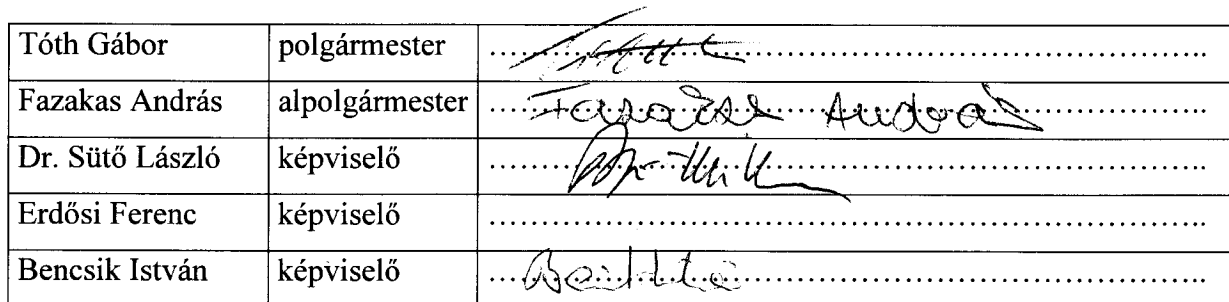 Tóth Gábor polgármester ........................................
Fazakas András alpolgármester Fazakas András
Dr. Sütő László képviselő ........................................
Erdősi Ferenc képviselő ........................................
Bencsik István képviselő ........................................